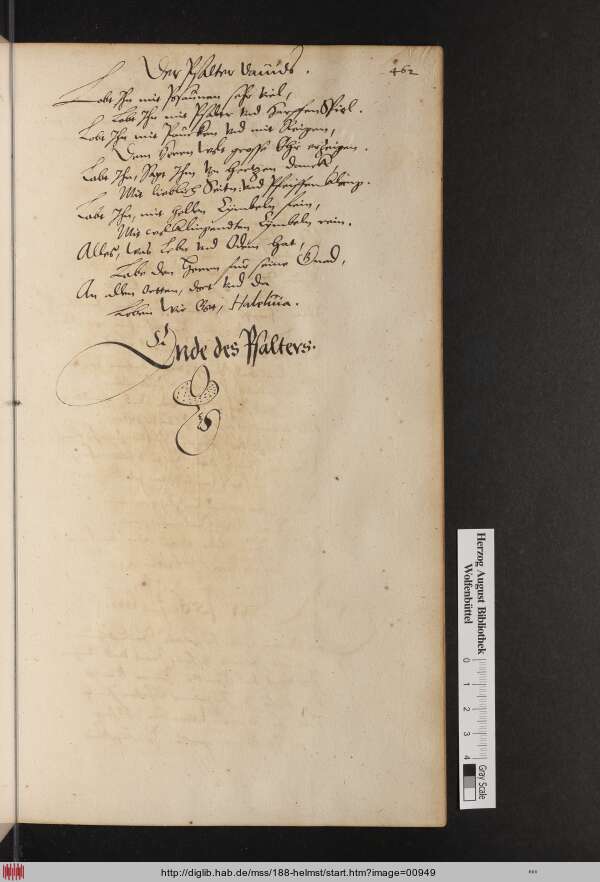 Der Psalter Dauids.
462
Lobt Ihn mit Posaunen sehr viel,
Lobt Ihn mit Psalter vnd Harpffen Spiel.
Lobt Ihn mit Paucken vnd mit Reigen,
Dem Herrn Lobt grosse Ehr erzeigen.
Lobt Ihn, Sagt Ihm von Hertzen danck
Mit lieblich Seiten: vnd Pfeiffen klang.
Lobt Ihn, mit hellen Cymbeln fein,
Mit wolklingendten Cymbeln rein.
Alles, was Lebt vnd Odem hat,
Lobe den Herrn für seine Gnad,
An allen ortten, dort vnd da
Loben wir Gott, Haleluia.
Ende des Psalters.
Herzog August Bibliothek
Wolfenbüttel
0 1 2 3 4
Gray Scale
http://diglib.hab.de/mss/188-helmst/start.htm?image=00949